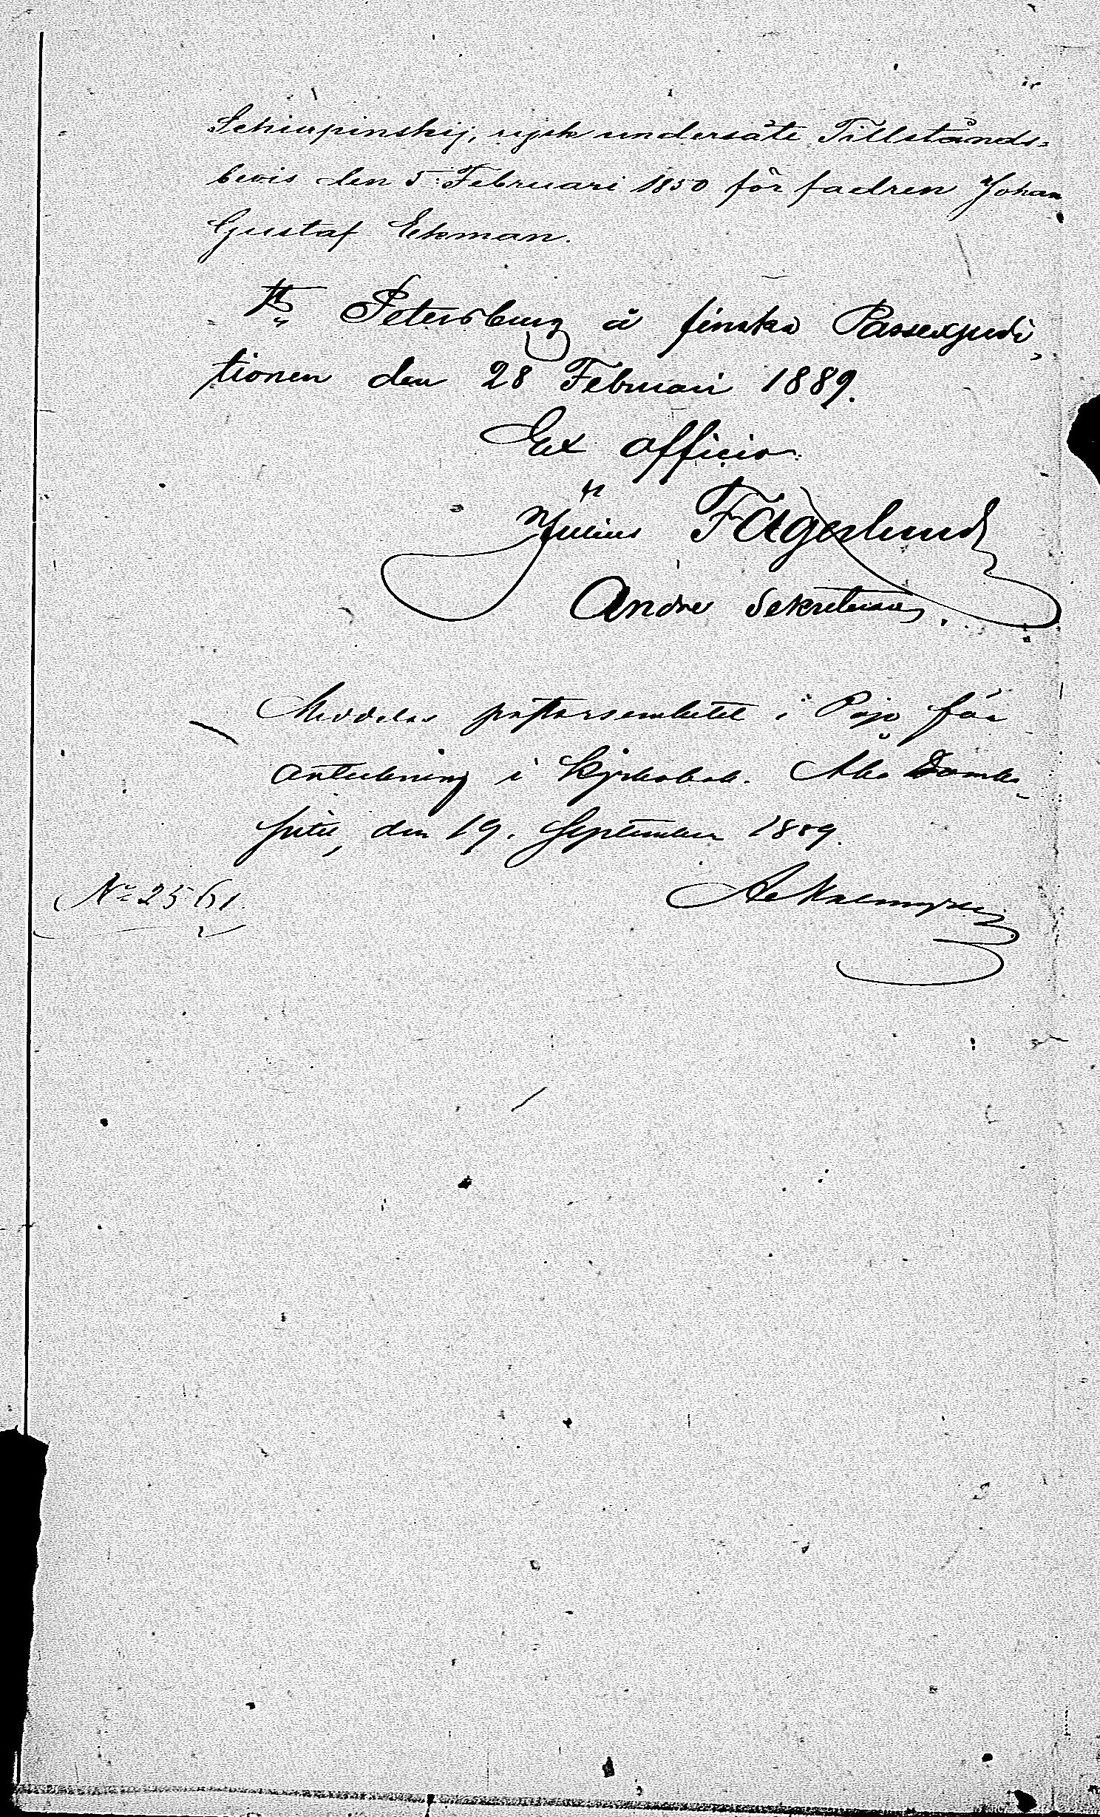 Schiupinskij, rysk undersåte. Tillstånds-
bevis den 5 Februari 1850 för fadren Johan
Gustaf Ekman.
St Petersburg å finska Passexpedi-
tionen den 28 Februari 1889.
Ex officio:
Julius Fagerlund
Andre Sekreterare.
Meddelas pastorsembetet i Pojo för
anteckning i kyrkobok. Åbo Domka-
pitel, den 19. September 1889.
No 2561.